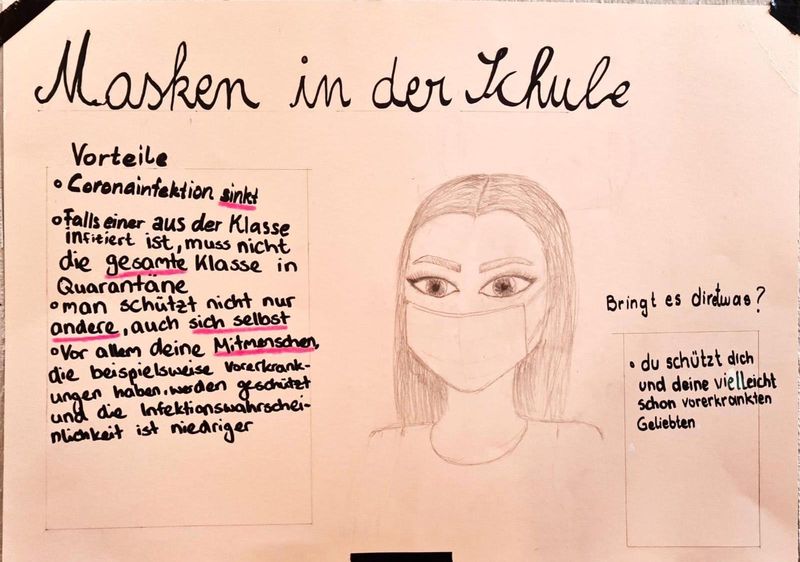 Masken in der Schule
Vorteile
• Coronainfektion sinkt
• Falls einer aus der Klasse
infitiert ist, muss nicht
die gesamte Klasse in
Quarantäne
• man schützt nicht nur
andere, auch sich selbst
• Vor allem deine Mitmenschen,
die beispielsweise Vorerkrank-
ungen haben, werden geschützt
und die Infektionswahrschei-
nlichkeit ist niedriger
Bringt es dir etwas?
• du schützt dich
und deine vielleicht
schon vorerkrankten
Geliebten